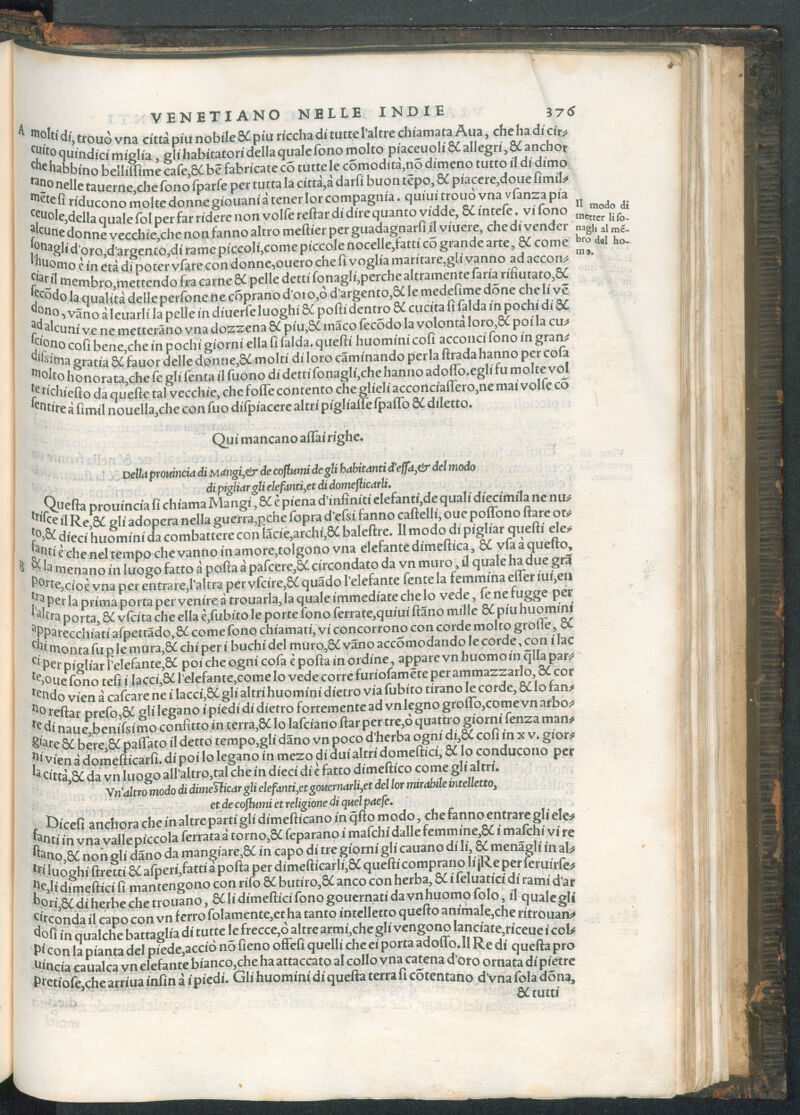 VENETIANO NELLE INDIE 376
A molti di, trouò vna città piu nobile & piu riccha di tutte l'altre chiamata Aua, che ha di cir⸗
cuito quindici miglia, gli habitatori della quale ſono molto piaceuoli & allegri, & anchor
che habbino belliſſime caſe, & bẽ fabricate cõ tutte le cõmodità, nõ dimeno tutto il di dimo
rano nelle tauerne, che ſono ſparſe per tutta la città, à darſi buon tẽpo, & piacere, doue ſimil⸗
mẽte ſi riducono molte donne giouani à tener lor compagnia. quiui trouò vna vſanza pia
ceuole, della quale ſol per far ridere non volſe reſtar di dire quanto vidde, & inteſe. vi ſono
alcune donne vecchie, che non fanno altro meſtier per guadagnarſi il viuere, che di vender
ſonagli d'oro, d'argento, di rame piccoli, come piccole nocelle, fatti cõ grande arte, & come
l'huomo è in età di poter vſare con donne, ouero che ſi voglia maritare, gli vanno ad accon⸗
ciar il membro, mettendo fra carne & pelle detti ſonagli, perche altramente ſaria rifiutato, &
ſecõdo la qualità delle perſone ne cõprano d'oro, ò d'argento, & le medeſime dõne che li vẽ
dono, vãno à leuarli la pelle in diuerſe luoghi & poſti dentro & cucita ſi ſalda in pochi di &
ad alcuni ve ne metterãno vna dozzena & piu, & mãco ſecõdo la volontà loro, & poi la cu⸗
ſciono coſi bene, che in pochi giorni ella ſi ſalda. queſti huomini coſi acconci ſono in gran⸗
diſsima gratia & fauor delle donne, & molti di loro cãminando per la ſtrada hanno per coſa
molto honorata, che ſe gli ſenta il ſuono di detti ſonagli, che hanno adoſſo. egli fu molte vol
te richieſto da queſte tal vecchie, che foſſe contento che glieli acconciaſſero, ne mai volſe cõ
ſentire à ſimil nouella, che con ſuo diſpiacere altri pigliaſſe ſpaſſo & diletto.
Il modo di
metter li ſo-
nagli al mẽ-
bro del ho-
mo.
Qui mancano aſſai righe.
Della prouincia di Mangi, & de coſtumi de gli habitanti d'eſſa, & del modo
di pigliar gli elefanti, et di domeſticarli.
Queſta prouincia ſi chiama Mangi, & è piena d'infiniti elefanti, de quali diecimila ne nu⸗
triſce il Re, & gli adopera nella guerra, ꝑche ſopra d'eſsi fanno caſtelli, oue poſſono ſtare ot⸗
to, & dieci huomini da combattere con lãcie, archi, & baleſtre. Il modo di pigliar queſti ele⸗
fanti è che nel tempo che vanno in amore, tolgono vna elefante dimeſtica, & vſa a queſto,
B & la menano in luogo fatto à poſta à paſcere, & circondato da vn muro, il quale ha due grã
porte, cioè vna per entrare, l'altra per vſcire, & quãdo l'elefante ſente la femmina eſſer iui, en
tra per la prima porta per venire à trouarla, la quale immediate che lo vede, ſe ne fugge per
l'altra porta, & vſcita che ella è, ſubito le porte ſono ſerrate, quiui ſtãno mille & piu huomini
apparecchiati aſpettãdo, & come ſono chiamati, vi concorrono con corde molto groſſe, &
chi monta ſu ꝑ le mura, & chi per i buchi del muro, & vãno accõmodando le corde, con i lac
ci per pigliar l'elefante, & poi che ogni coſa è poſta in ordine, appare vn huomo in q̃lla par⸗
te, oue ſono teſi i lacci, & l'elefante, come lo vede corre furioſamẽte per ammazzarlo, & cor
rendo vien à caſcare ne i lacci, & gli altri huomini dietro via ſubito tirano le corde, & lo fan⸗
no reſtar preſo, & gli legano i piedi di dietro fortemente ad vn legno groſſo, come vn arbo⸗
re di naue, beniſsimo confitto in terra, & lo laſciano ſtar per tre, ò quattro giorni ſenza man⸗
giare & bere, & paſſato il detto tempo, gli dãno vn poco d'herba ogni di, & coſi in x v. gior⸗
ni vien à domeſticarſi. di poi lo legano in mezo di dui altri domeſtici, & lo conducono per
la città, & da vn luogo all'altro, tal che in dieci di è fatto dimeſtico come gli altri.
Vn'altro modo di dimeſticar gli elefanti, et gouernarli, et del lor mirabile intelletto,
et de coſtumi et religione di quel paeſe.
Diceſi anchora che in altre parti gli dimeſticano in q̃ſto modo, che fanno entrare gli ele⸗
fanti in vna valle piccola ſerrata à torno, & ſeparano i maſchi dalle femmine, & i maſchi vi re
ſtano, & non gli dãno da mangiare, & in capo di tre giorni gli cauano di li, & menãgli in al⸗
tri luoghi ſtretti & aſperi, fatti à poſta per dimeſticarli, & queſti comprano li Re per ſeruirſe⸗
ne, li dimeſtici ſi mantengono con riſo & butiro, & anco con herba, & i ſeluatici di rami d'ar
bori, & di herbe che trouano, & li dimeſtici ſono gouernati da vn huomo ſolo, il quale gli
circonda il capo con vn ferro ſolamente, et ha tanto intelletto queſto animale, che ritrouan⸗
doſi in qualche battaglia di tutte le frecce, ò altre armi, che gli vengono lanciate, riceue i col⸗
pi con la pianta del piede, acciò nõ ſieno offeſi quelli che ei porta adoſſo. Il Re di queſta pro
uincia caualca vn elefante bianco, che ha attaccato al collo vna catena d'oro ornata di pietre
pretioſe, che arriua inſin à i piedi. Gli huomini di queſta terra ſi cõtentano d'vna ſola dõna,
& tutti